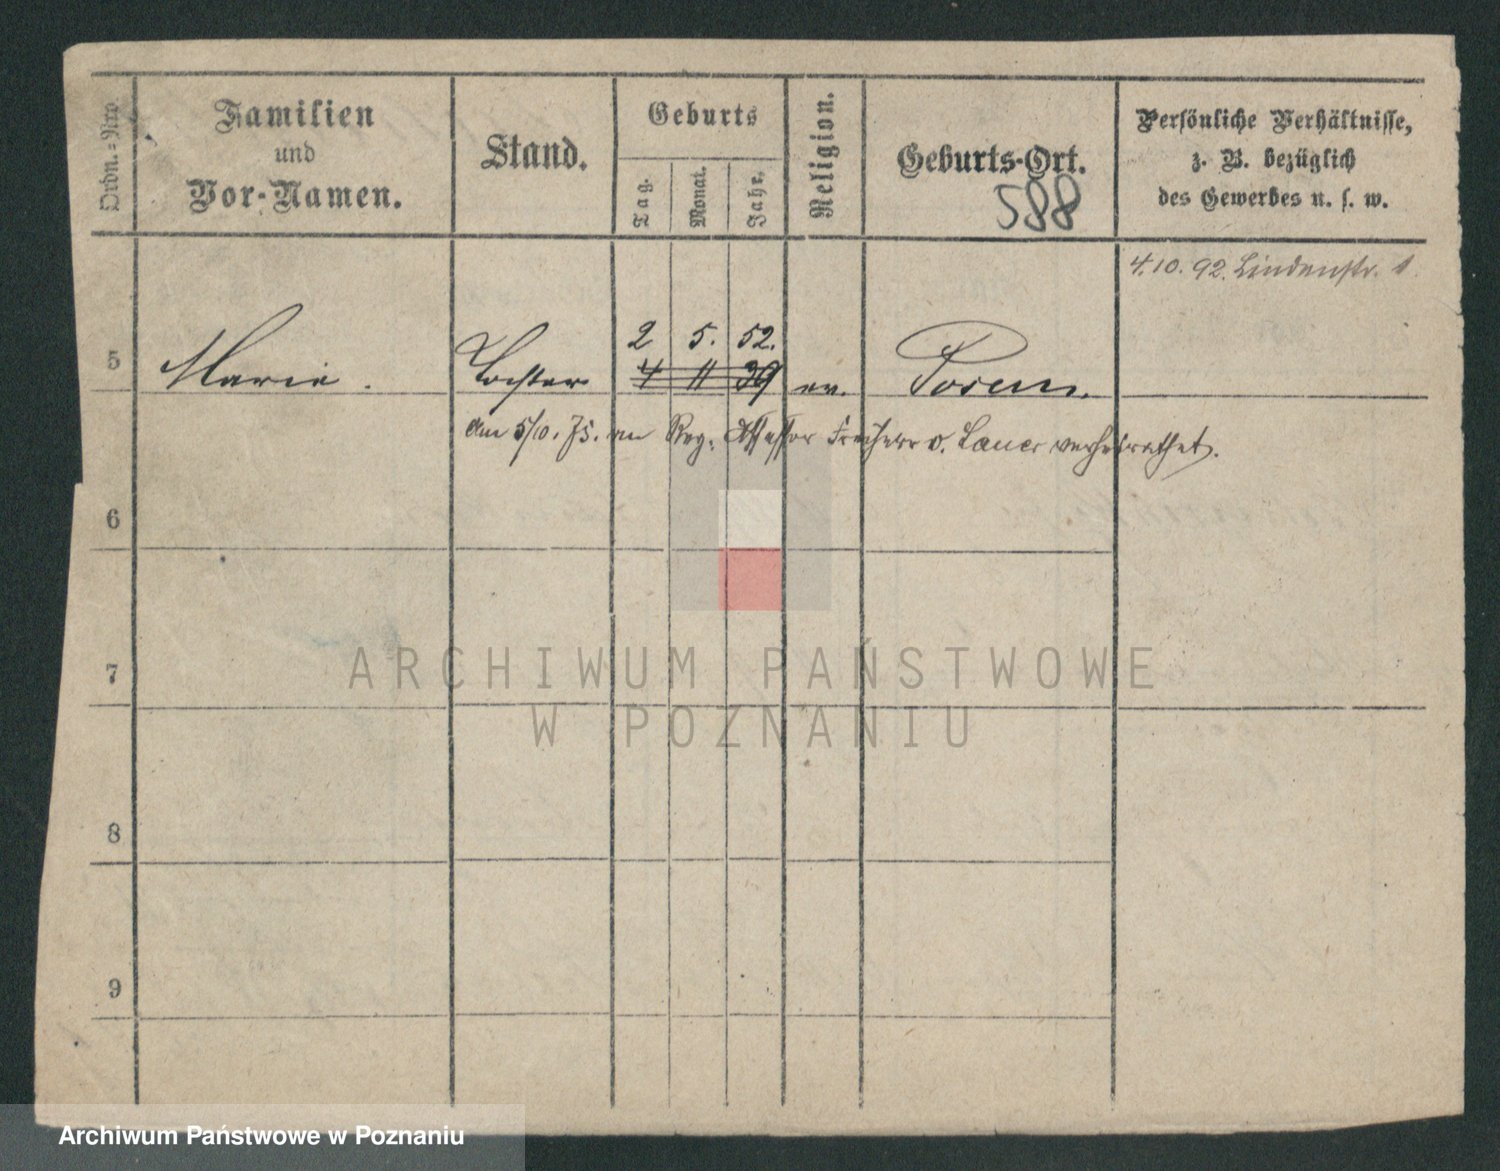 Ordn.=Nro.
Familien
und
Vor-Namen.
Stand.
Geburts
Tag.
Monat.
Jahr.
Religion.
Geburts-Ort.
588
Persönliche Verhältnisse,
z. B. bezüglich
des Gewerbes u. s. w.
4.10.92. Lindenstr. 1.
2 5. 52.
5 Marie. Tochter 4 11 39 ev. Posen.
Am 5/10. 75. an Reg. Assessor Freiherr v. Lauer verheirathet.
6
7
8
9
ARCHIWUM PAŃSTWOWE
W POZNANIU
Archiwum Państwowe w Poznaniu